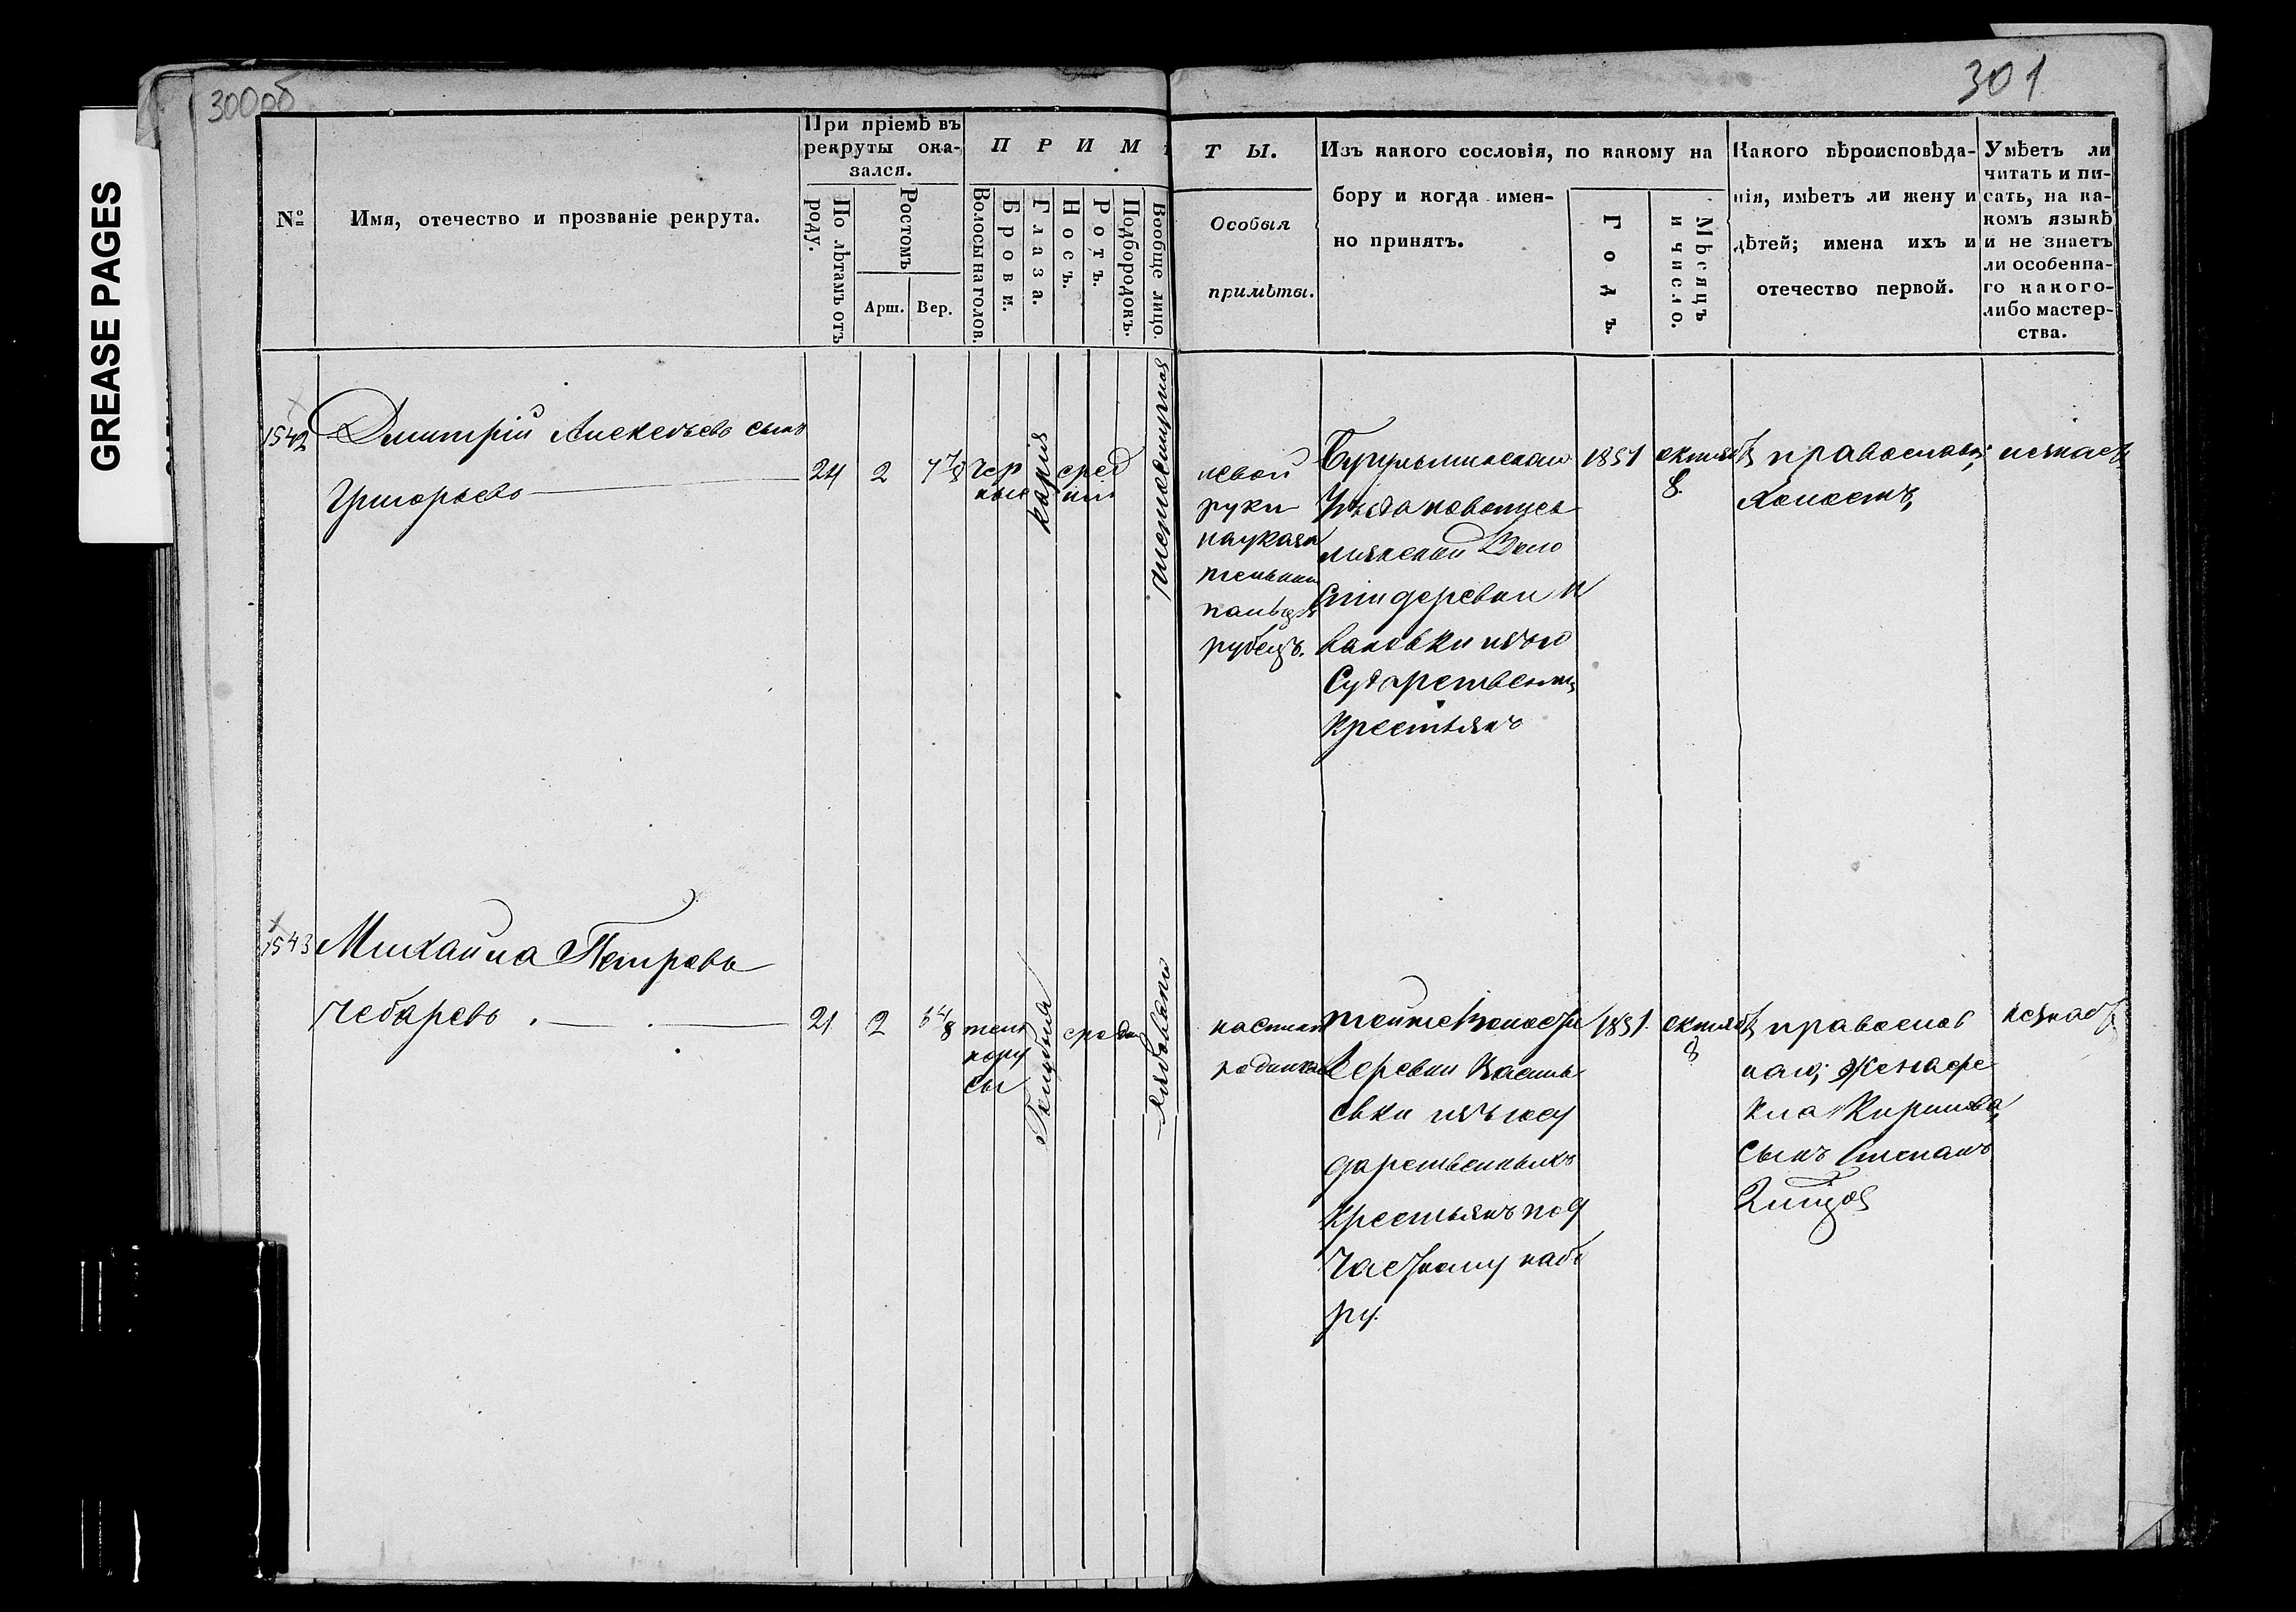 GREASE PAGES
300об
301
№
Имя, отечество и прозваніе рекрута.
При пріемѣ въ
рекруты ока-
зался.
По лѣтамъ отъ
роду.
Ростомъ
Арш.
Вер.
П Р И М
Волосы на голов.
Брови.
Глаза.
Носъ.
Ротъ.
Подбородокъ.
Вообще лицо.
Т Ы.
Особыя
примѣты.
Изъ какого сословія, по какому на
бору и когда имен-
но принятъ.
Годъ.
Мѣсяцъ
и число.
Какого вѣроисповѣда-
нія, имѣетъ ли жену и
дѣтей; имена ихъ и
отечество первой.
Умѣетъ ли
читать и пи-
сать, на ка-
комъ языкѣ
и не знаетъ
ли особенна-
го какого-
либо мастер-
ства.
1542
Дмитрій Алексѣевъ сынъ
Григорьевъ
24
2
4 7/8
чер
ные
карія
сред
ніи
левой
руки
на указа
тельном
пальцѣ
рубецъ.
Бугульминскаго
Уезда
Воло
сти деревни И
вановки изъ го
сударственных
крестьянъ
1851
октяб
8.
православн;
холостъ,
незнаетъ
1543
Михайла Петровъ
Чебаревъ .
21
2
5 4/8
темно
русы
голубыя
средни
рябовато
родинка
тойже волости
деревни Василь
евки изъ госу
дарственныхъ
крестьянъ по 9
частному набо
ру.
1851.
октяб
8
православ
наго; жена Фе
кла Кирилова,
сынъ Степанъ
незнаетъ